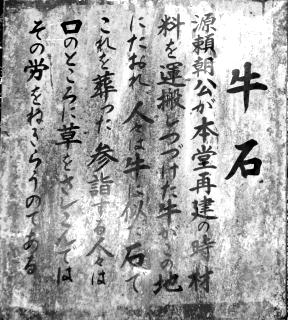 牛石
源頼朝公が本堂再建の時材
料を運搬しつづけた牛がこの地
にたおれ人々は牛に似た石で
これを葬った 参詣する人々は
口のところに草をさしこんでは
その労をねぎらうのである